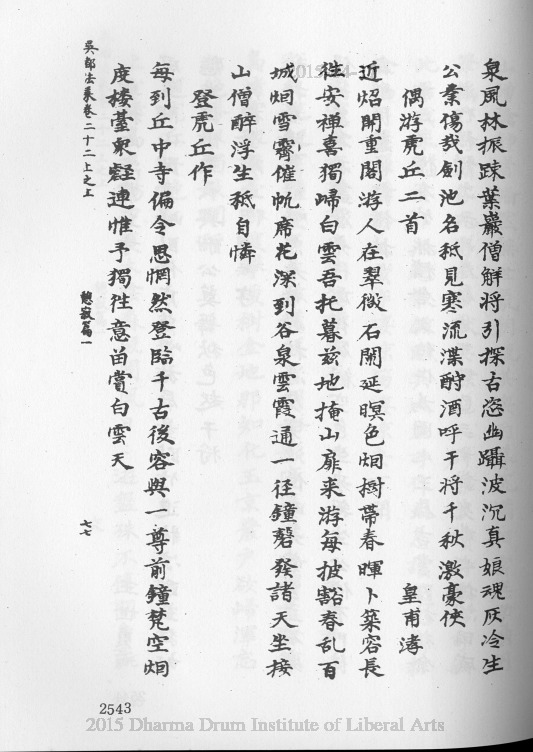 泉風林振踈葉巖僧解將引探古恣幽躡波沉真娘魂灰冷生
公業傷哉劍池名秪見寒流渫酹酒呼干將千秋激豪俠
偶游虎丘二首
皇甫涍
近炤開重閣游人在翠微石闌延暝色烟樹帶春暉卜築容長
徃安禅喜獨歸白雲吾托暮兹地掩山扉来游每披豁春乱百
城烟雪霽催帆席花深到谷泉雲霞通一径鐘磬發諸天坐接
山僧醉浮生秪自憐
登虎丘作
每到丘中寺偏令思惘然登臨千古後容與一尊前鐘梵空烟
度楼臺衆壑連惟予獨徃意留賞白雲天
吳都法乗卷二十二上之上
憩寂篇一
七七
2543
2015 Dharma Drum Institute of Liberal Arts